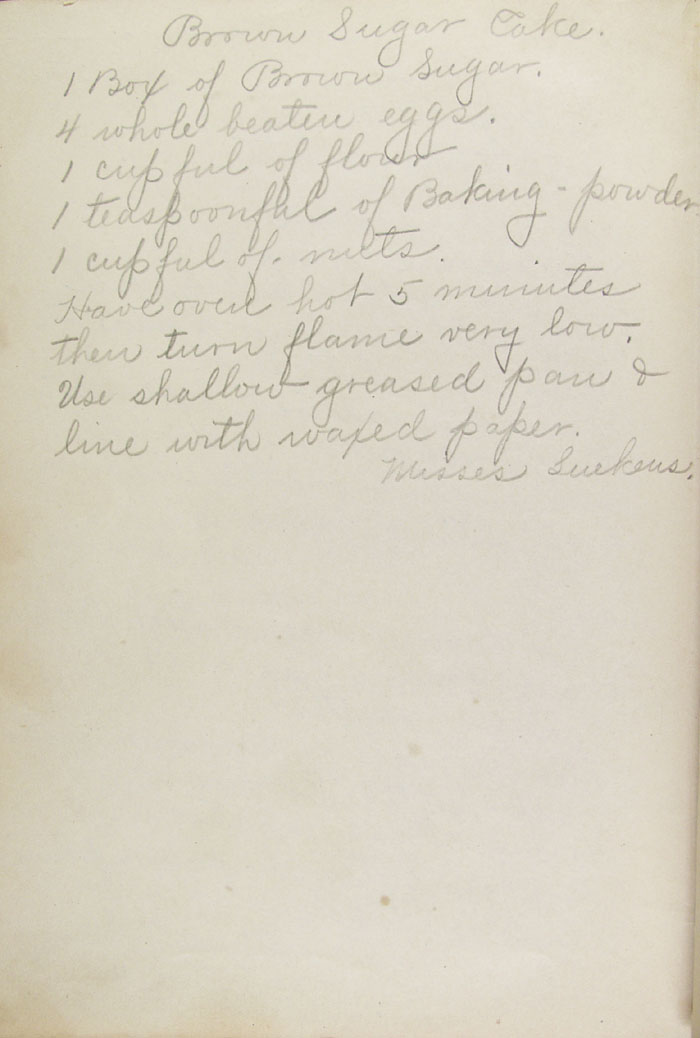 Brown Sugar Cake.
1 Box of Brown Sugar.
4 whole beaten eggs.
1 cupful of flour
1 teaspoonful of Baking-powder
1 cupful of. nuts.
Have oven hot 5 minutes
then turn flame very low.
Use shallow greased pan &
line with waxed paper.
Misses